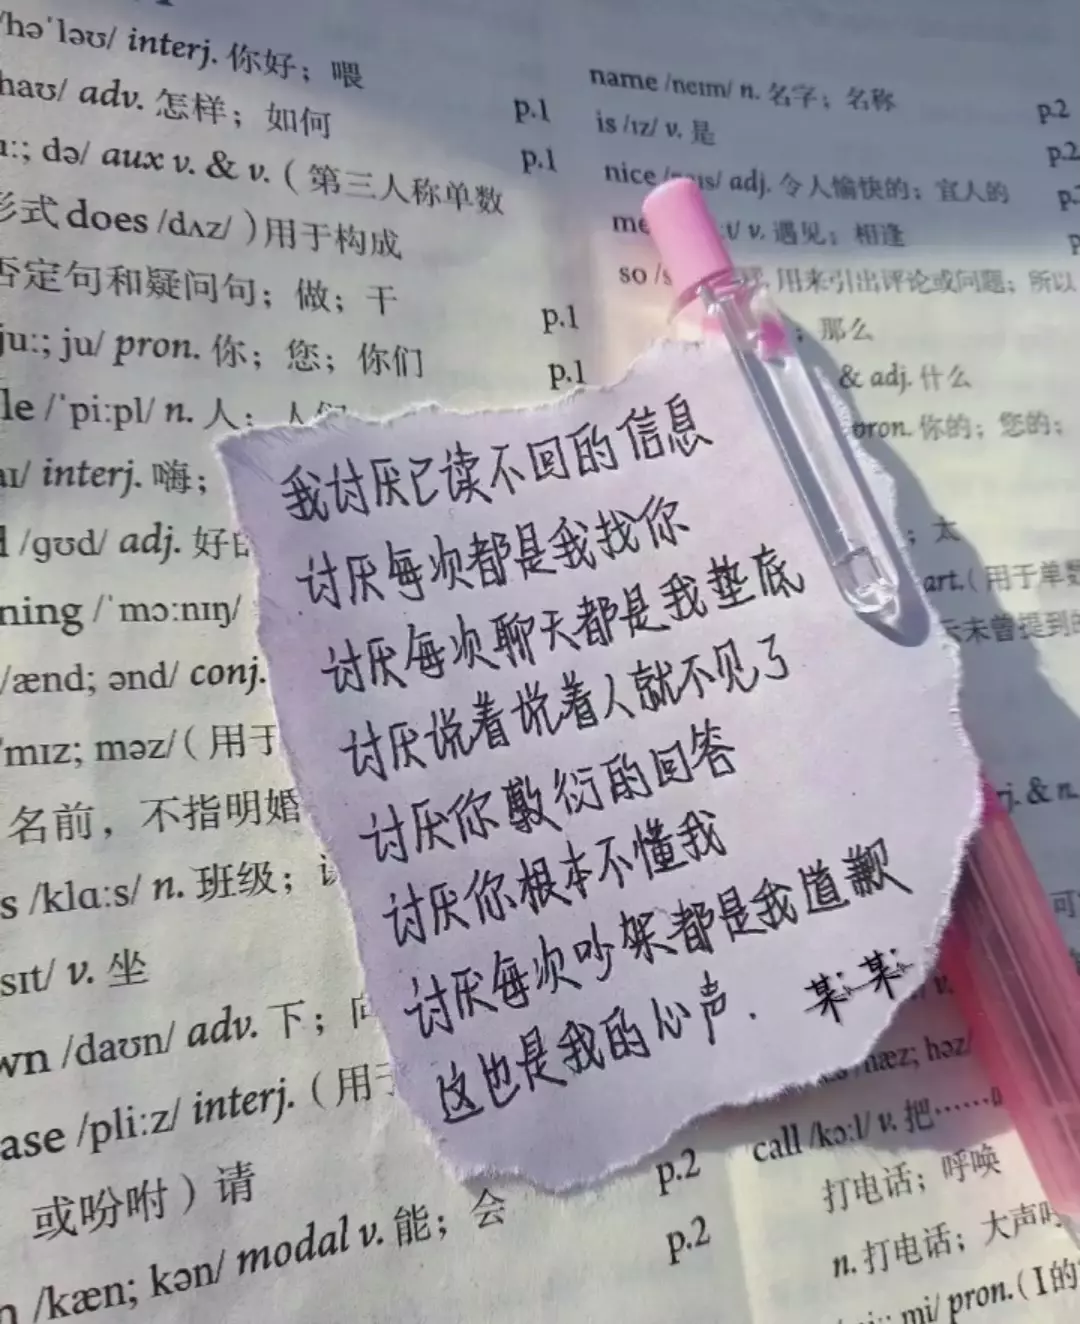 /həˈləʊ/ interj. 你好；喂
haʊ/ adv. 怎样；如何 p.1
uː; də/ aux v. & v.（第三人称单数 p.1
形式 does /dʌz/）用于构成
否定句和疑问句；做；干 p.1
juː; ju/ pron. 你；您；你们 p.1
le /ˈpiːpl/ n. 人；人们
aɪ/ interj. 嗨；
d /ɡʊd/ adj. 好的
ning /ˈmɔːnɪŋ/
/ænd; ənd/ conj.
ˈmɪz; məz/（用于
名前，不指明婚
s /klɑːs/ n. 班级；
sɪt/ v. 坐
wn /daʊn/ adv. 下；向
ase /pliːz/ interj.（用于
或吩咐）请 p.2
n /kæn; kən/ modal v. 能；会 p.2
name /neɪm/ n. 名字；名称 p.2
is /ɪz/ v. 是 p.2
nice /naɪs/ adj. 令人愉快的；宜人的 p.
me t/ v. 遇见；相逢 p
so /s 用来引出评论或问题；所以
；那么
& adj. 什么
pron. 你的；您的；
；太
art.（用于单数
未曾提到的
我讨厌已读不回的信息
讨厌每次都是我找你
讨厌每次聊天都是我垫底
讨厌说着说着人就不见了
讨厌你敷衍的回答
讨厌你根本不懂我
讨厌每次吵架都是我道歉
这也是我的心声. 某某
j. & n.
可
v.
/hæz; həz/
call /kɔːl/ v. 把……
打电话；呼唤
n. 打电话；大声呼
mi/ pron.（I的